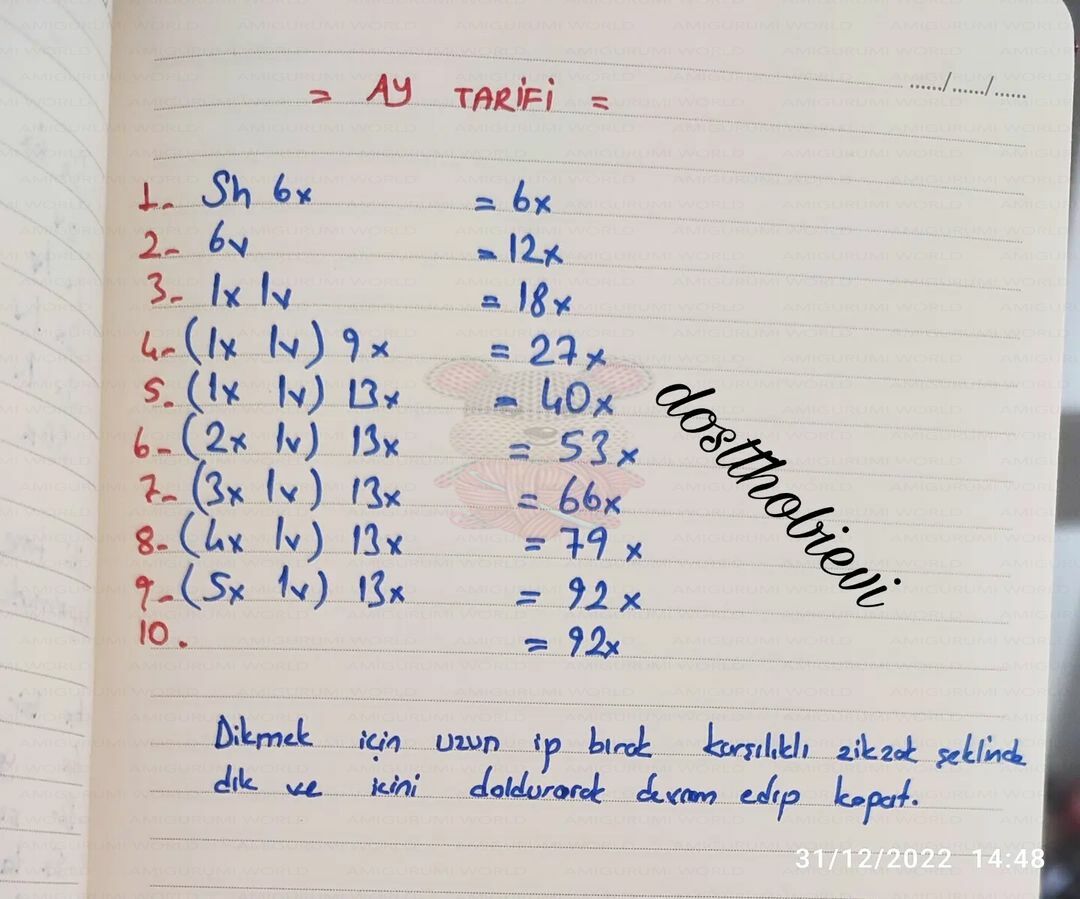 ....../....../......
= AY TARİFİ =
1- Sh 6x = 6x
2- 6v = 12x
3- 1x 1v = 18x
4- (1x 1v) 9x = 27x
5- (1x 1v) 13x = 40x
6- (2x 1v) 13x = 53x
7- (3x 1v) 13x = 66x
8- (4x 1v) 13x = 79x
9- (5x 1v) 13x = 92x
10. = 92x
dosttthobievi
Dikmek için uzun ip bırak karşılıklı zikzak şeklinde
dik ve içini doldurarak devam edip kapat.
31/12/2022 14:48
AMIGURUMI WORLD